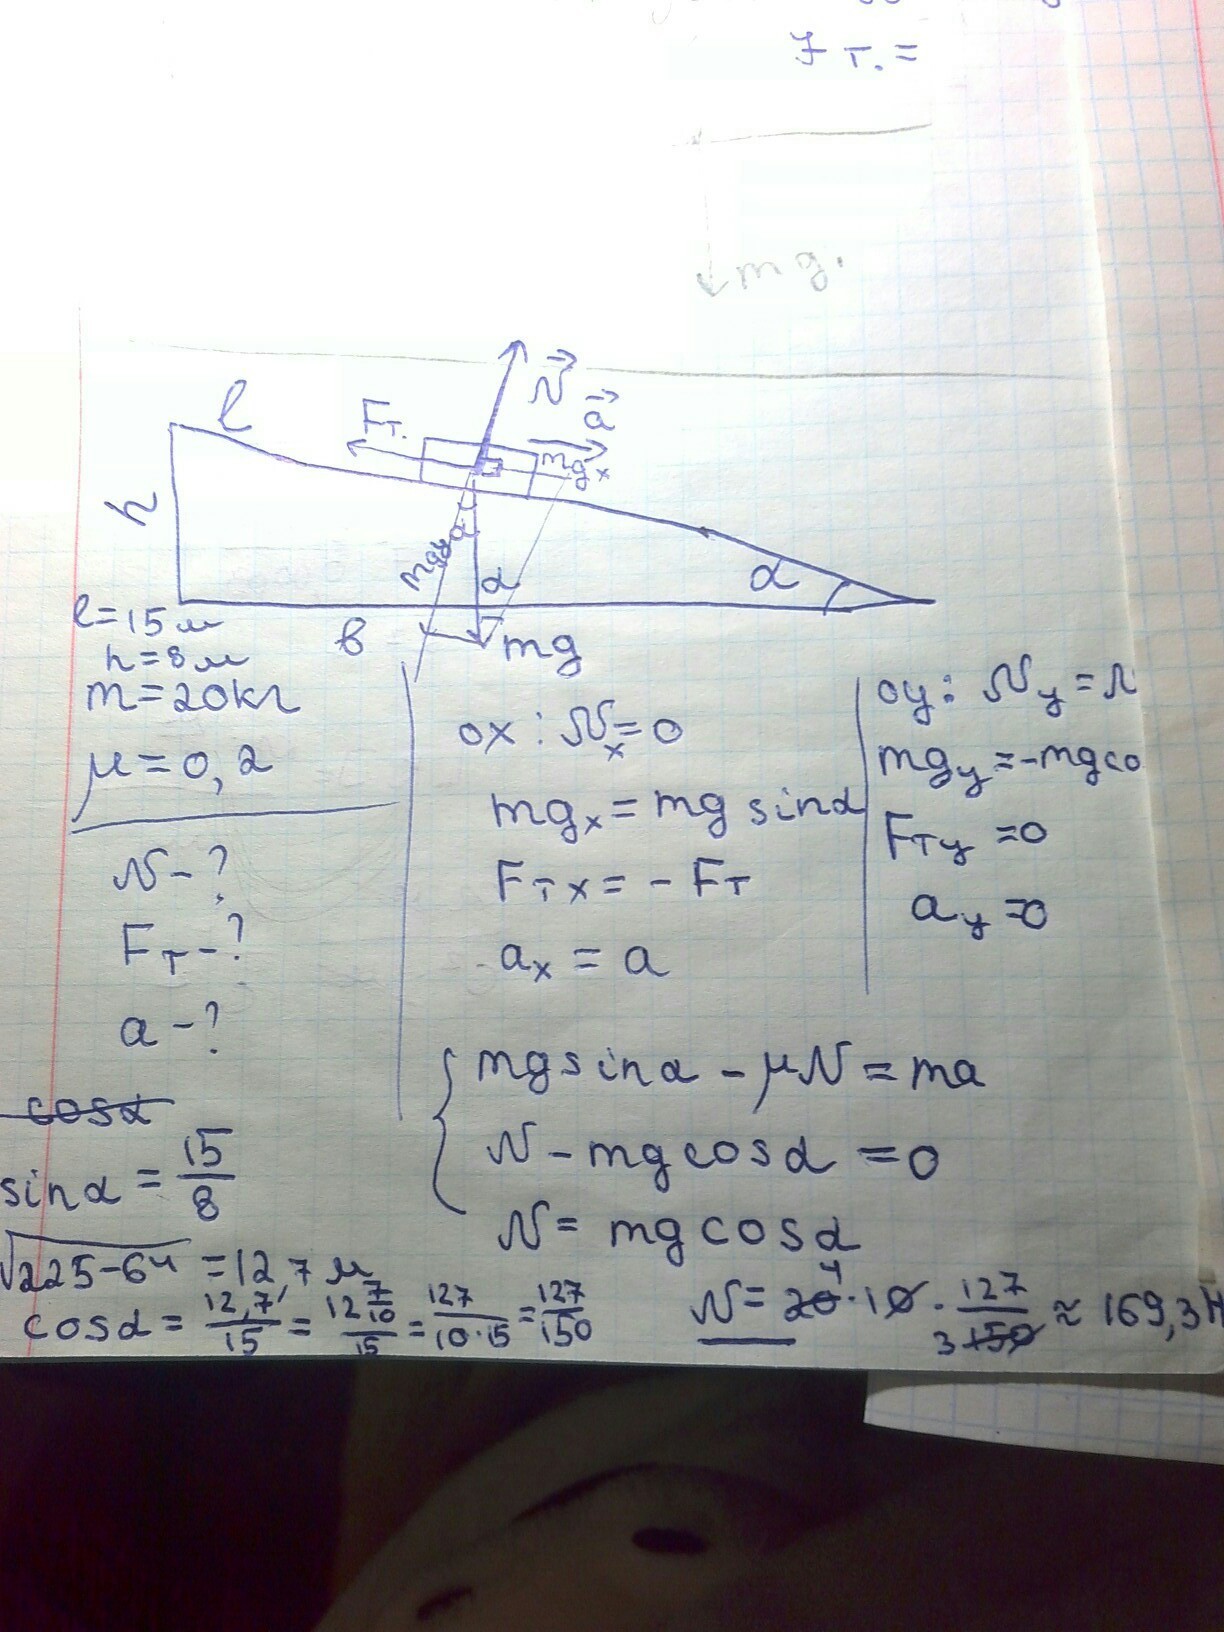 Fт.=
mg.
l
Fт.
N
a
mgx
h
mgy
α
α
α
l=15м
в
mg
h=8м
m=20кг
μ=0,2
N-?
Fт-?
a-?
ox: Nx=0
mgx=mg sinα
Fтx=-Fт
ax=a
oy: Ny=N
mgy=-mgco
Fтy=0
ay=0
mgsinα-μN=ma
N-mgcosα=0
N=mgcosα
cosα
sinα=15/8
√225-64=12,7м
cosα=12,7/15=12 7/10/15=127/10·15=127/150
N=20·10·127/150≈169,3Н
4
3